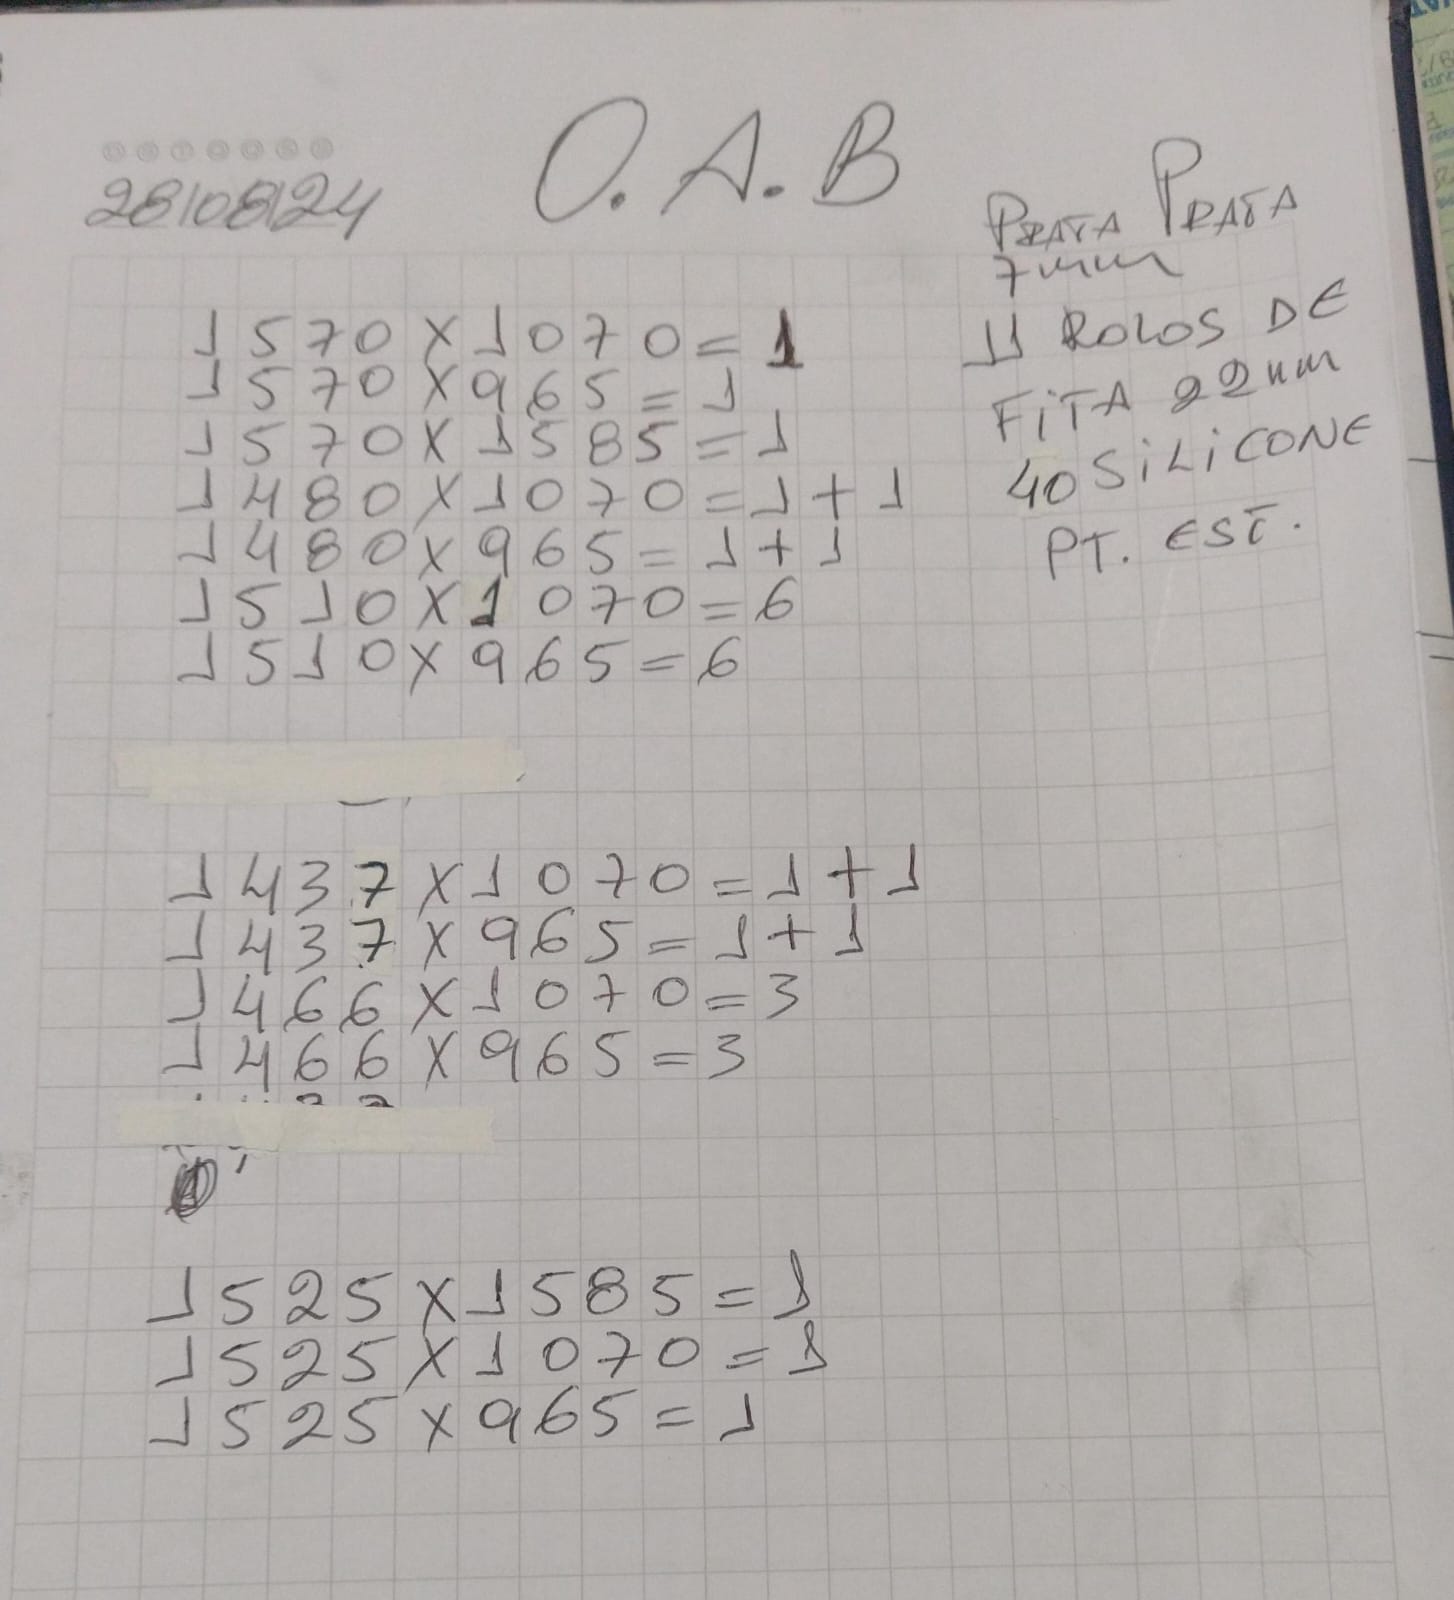 28/08/24
O.A.B
PRATA PRATA
7mm
11 ROLOS DE
FITA 22mm
40 SILICONE
PT. EST.
1570X1070=1
1570X965=1
1570X1585=1
1480X1070=1+1
1480X965=1+1
1510X1070=6
1510X965=6
1437X1070=1+1
1437X965=1+1
1466X1070=3
1466X965=3
1525X1585=1
1525X1070=1
1525X965=1